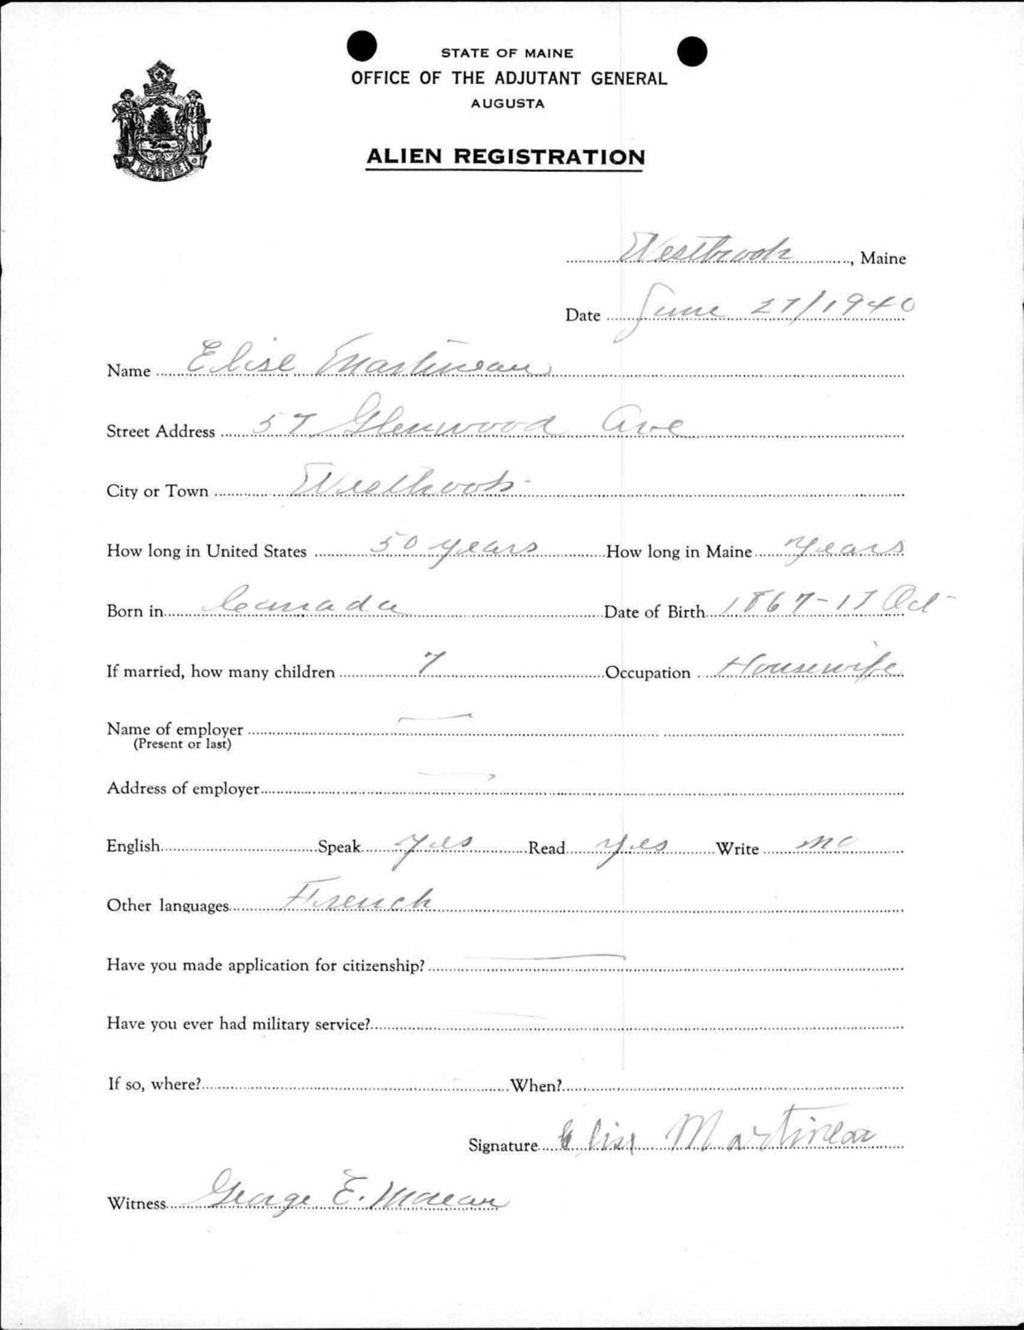 STATE OF MAINE
OFFICE OF THE ADJUTANT GENERAL
AUGUSTA
ALIEN REGISTRATION
MAINE
Westbrook, Maine
Date June 27/1940
Name Elise Martineau
Street Address 57 Glenwood Ave
City or Town Westbrook
How long in United States 50 years How long in Maine Years
Born in Canada Date of Birth 1867-17 Oct
If married, how many children 7 Occupation Housewife
Name of employer —
(Present or last)
Address of employer —
English Speak Yes Read Yes Write no
Other languages French
Have you made application for citizenship? —
Have you ever had military service? —
If so, where? When?
Signature Elise Martineau
Witness George E. Moreau